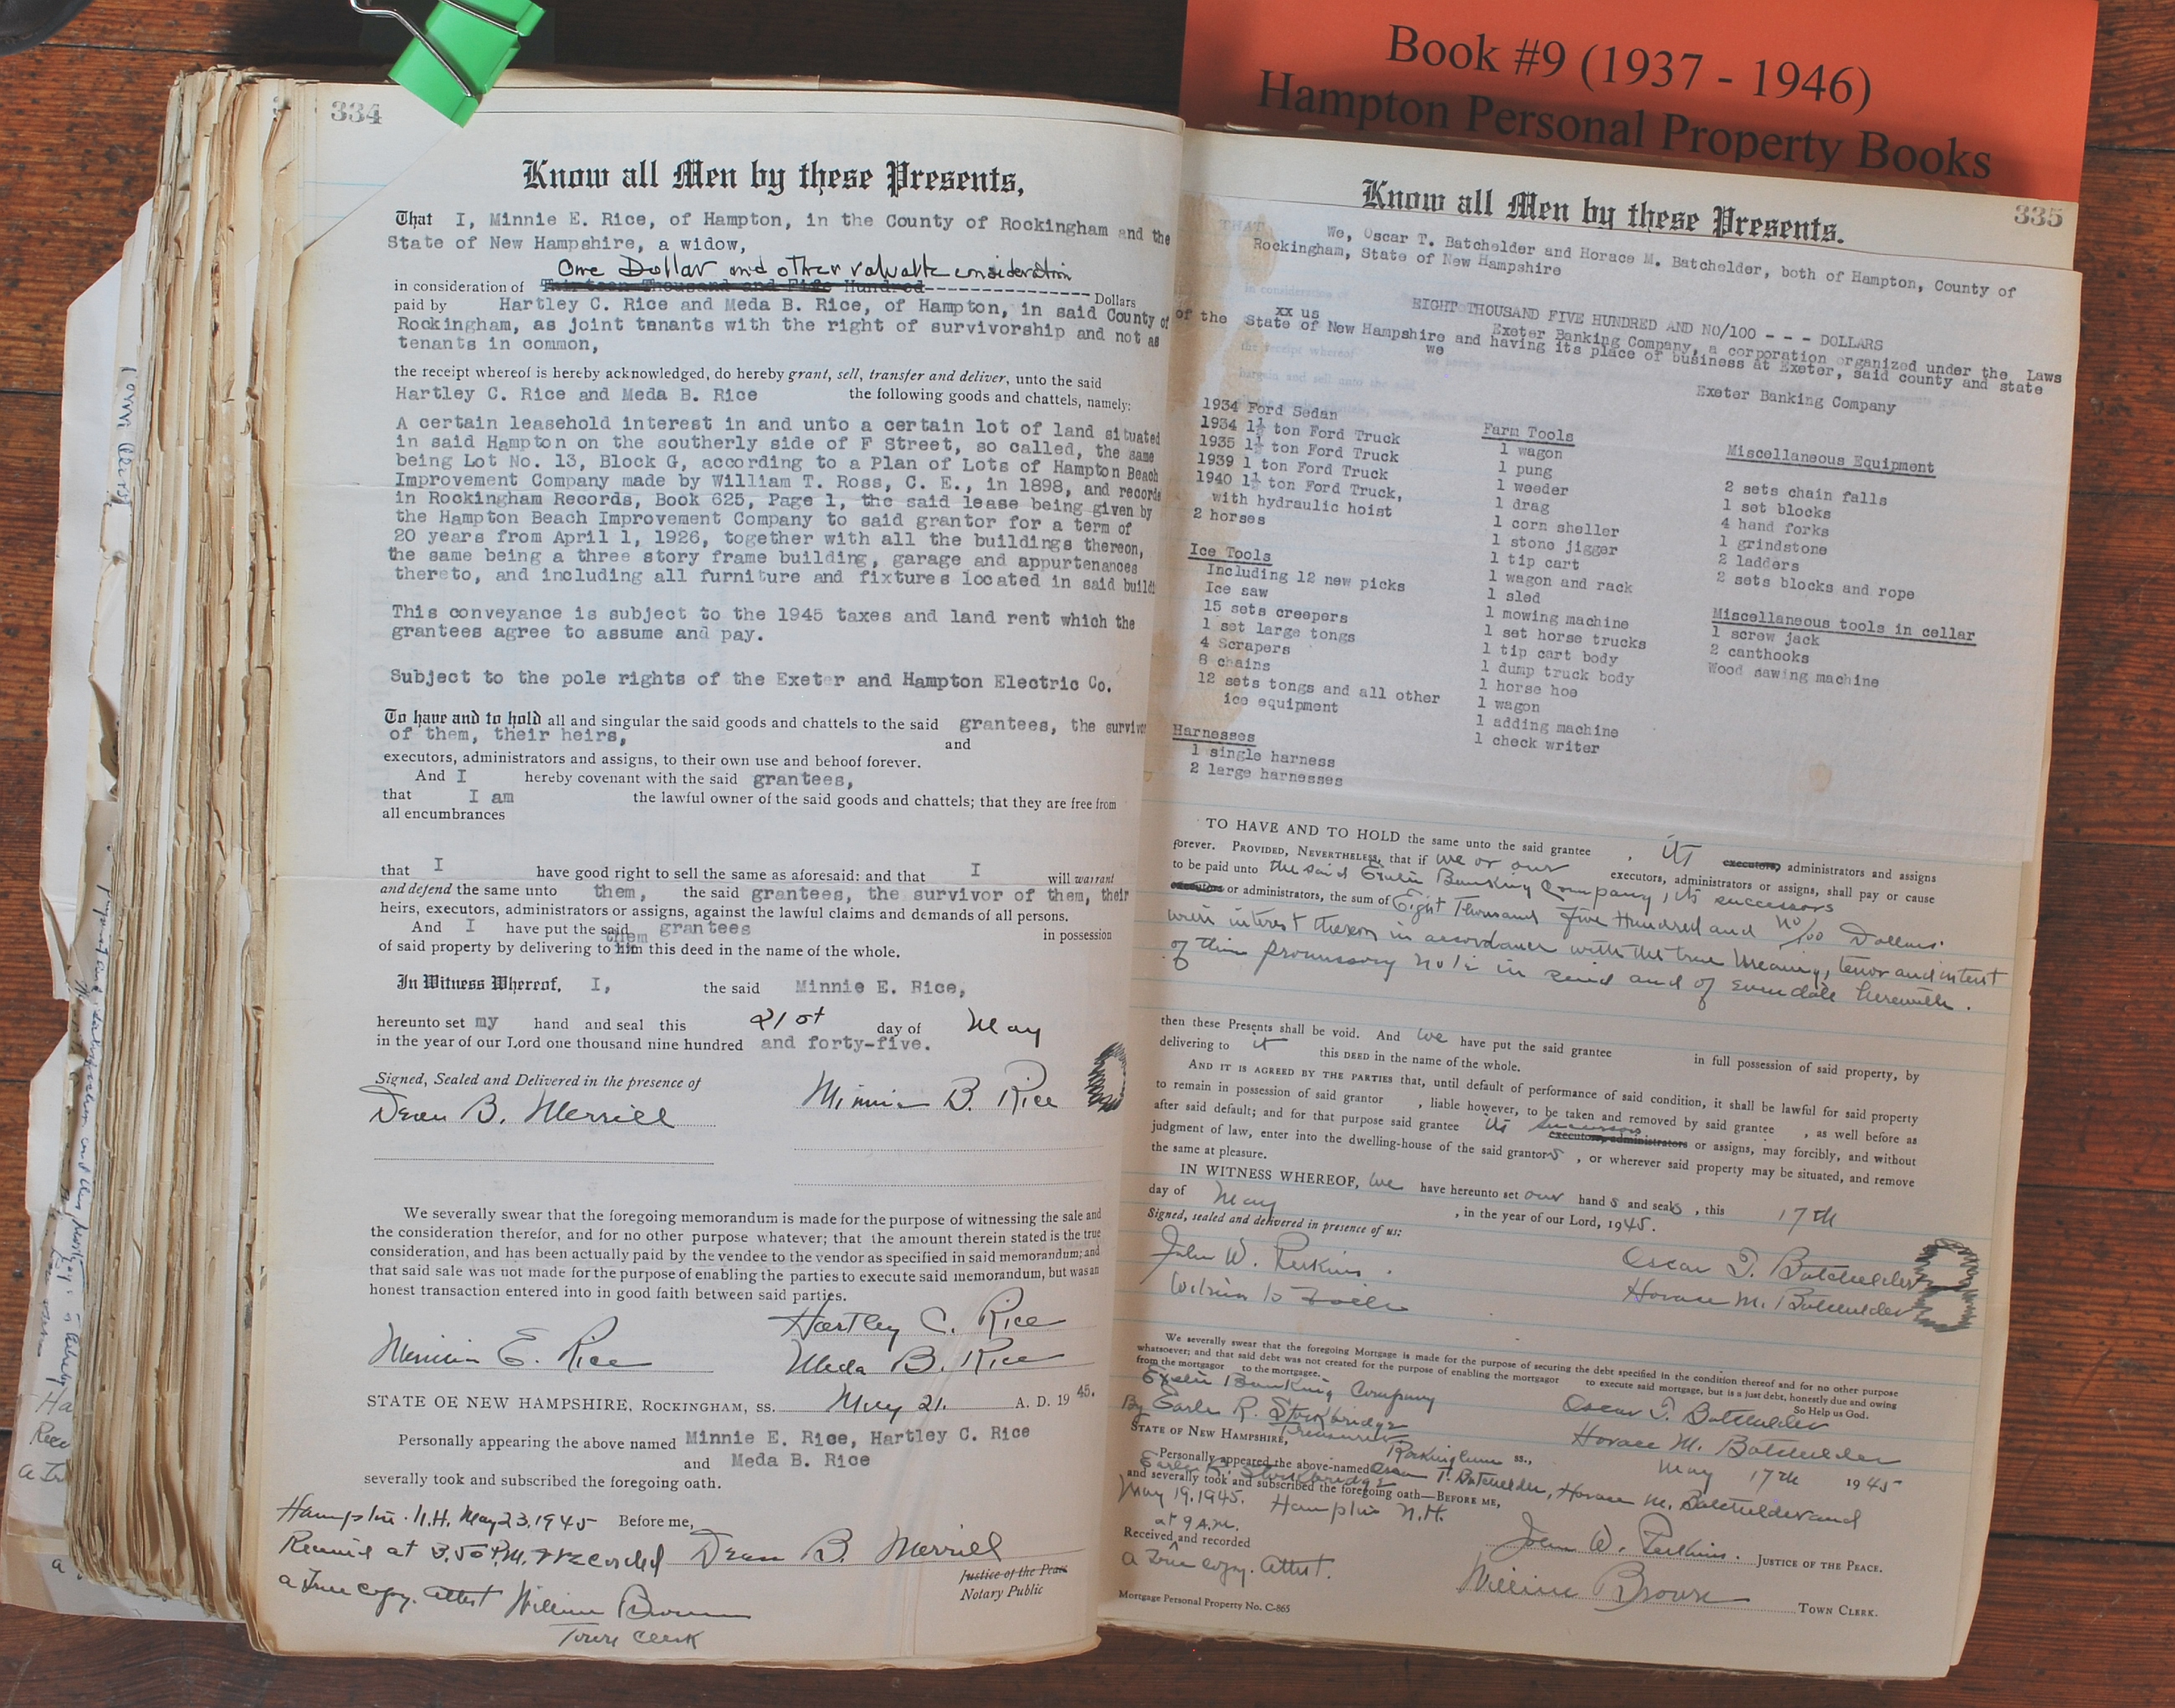 Book #9 (1937 - 1946)
Hampton Personal Property Books
334
Know all Men by these Presents,
That I, Minnie E. Rice, of Hampton, in the County of Rockingham and the
State of New Hampshire, a widow,
One Dollar and other valuable consideration
in consideration of Thirteen Thousand and Five Hundred-------------------- Dollars
paid by Hartley C. Rice and Meda B. Rice, of Hampton, in said County of
Rockingham, as joint tenants with the right of survivorship and not as
tenants in common,
the receipt whereof is hereby acknowledged, do hereby grant, sell, transfer and deliver, unto the said
Hartley C. Rice and Meda B. Rice the following goods and chattels, namely:
A certain leasehold interest in and unto a certain lot of land situated
in said Hampton on the southerly side of F Street, so called, the same
being Lot No. 13, Block G, according to a Plan of Lots of Hampton Beach
Improvement Company made by William T. Ross, C. E., in 1898, and records
in Rockingham Records, Book 625, Page 1, the said lease being given by
the Hampton Beach Improvement Company to said grantor for a term of
20 years from April 1, 1926, together with all the buildings thereon,
the same being a three story frame building, garage and appurtenances
thereto, and including all furniture and fixtures located in said buildi
This conveyance is subject to the 1945 taxes and land rent which the
grantees agree to assume and pay.
Subject to the pole rights of the Exeter and Hampton Electric Co.
To have and to hold all and singular the said goods and chattels to the said grantees, the survivo
of them, their heirs, and
executors, administrators and assigns, to their own use and behoof forever.
And I hereby covenant with the said grantees,
that I am the lawful owner of the said goods and chattels; that they are free from
all encumbrances
that I have good right to sell the same as aforesaid: and that I will warrant
and defend the same unto them, the said grantees, the survivor of them, their
heirs, executors, administrators or assigns, against the lawful claims and demands of all persons.
And I have put the said grantees in possession
them
of said property by delivering to him this deed in the name of the whole.
In Witness Whereof, I, the said Minnie E. Rice,
hereunto set my hand and seal this 21st day of May
in the year of our Lord one thousand nine hundred and forty-five.
Signed, Sealed and Delivered in the presence of
Dean B. Merrill Minnie B. Rice
We severally swear that the foregoing memorandum is made for the purpose of witnessing the sale and
the consideration therefor, and for no other purpose whatever; that the amount therein stated is the true
consideration, and has been actually paid by the vendee to the vendor as specified in said memorandum; and
that said sale was not made for the purpose of enabling the parties to execute said memorandum, but was an
honest transaction entered into in good faith between said parties.
Hartley C. Rice
Minnie E. Rice Meda B. Rice
STATE OF NEW HAMPSHIRE, ROCKINGHAM, SS. May 21. A. D. 19 45.
Personally appearing the above named Minnie E. Rice, Hartley C. Rice
and Meda B. Rice
severally took and subscribed the foregoing oath.
Hampton. N.H. May 23, 1945 Before me,
Received at 3.50 P.M. & recorded Dean B. Merrill
Justice of the Peace
a True copy. attest William Brown Notary Public
Town Clerk
335
Know all Men by these Presents.
THAT We, Oscar T. Batchelder and Horace M. Batchelder, both of Hampton, County of
Rockingham, State of New Hampshire
In consideration of EIGHT THOUSAND FIVE HUNDRED AND NO/100 - - - DOLLARS
xx us Exeter Banking Company, a corporation organized under the Laws
of the State of New Hampshire and having its place of business at Exeter, said county and state
the receipt whereof we
bargain and sell unto the Exeter Banking Company
1934 Ford Sedan
1934 1½ ton Ford Truck
1935 1½ ton Ford Truck
1939 1 ton Ford Truck
1940 1½ ton Ford Truck,
with hydraulic hoist
2 horses
Ice Tools
Including 12 new picks
Ice saw
15 sets creepers
1 set large tongs
4 Scrapers
8 chains
12 sets tongs and all other
ice equipment
Harnesses
1 single harness
2 large harnesses
Farm Tools
1 wagon
1 pung
1 weeder
1 drag
1 corn sheller
1 stone jigger
1 tip cart
1 wagon and rack
1 sled
1 mowing machine
1 set horse trucks
1 tip cart body
1 dump truck body
1 horse hoe
1 wagon
1 adding machine
1 check writer
Miscellaneous Equipment
2 sets chain falls
1 set blocks
4 hand forks
1 grindstone
2 ladders
2 sets blocks and rope
Miscellaneous tools in cellar
1 screw jack
2 canthooks
Wood sawing machine
TO HAVE AND TO HOLD the same unto the said grantee , its executors, administrators and assigns
forever. PROVIDED, NEVERTHELESS, that if we or our executors, administrators or assigns, shall pay or cause
to be paid unto the said Exeter Banking Company, its successors
executors or administrators, the sum of Eight Thousand Five Hundred and no/100 Dollars
with interest thereon in accordance with the true meaning, tenor and intent
of their promissory note in and of even date herewith.
then these Presents shall be void. And we have put the said grantee in full possession of said property, by
delivering to it this DEED in the name of the whole.
AND IT IS AGREED BY THE PARTIES that, until default of performance of said condition, it shall be lawful for said property
to remain in possession of said grantor , liable however, to be taken and removed by said grantee , as well before as
after said default; and for that purpose said grantee its successors executors, administrators or assigns, may forcibly, and without
judgment of law, enter into the dwelling-house of the said grantors , or wherever said property may be situated, and remove
the same at pleasure.
IN WITNESS WHEREOF, we have hereunto set our hand s and seals , this 17th
day of May , in the year of our Lord, 1945.
Signed, sealed and delivered in presence of us:
John W. Perkins. Oscar T. Batchelder
Horace M. Batchelder
We severally swear that the foregoing Mortgage is made for the purpose of securing the debt specified in the condition thereof and for no other purpose
whatsoever; and that said debt was not created for the purpose of enabling the mortgagor to execute said mortgage, but is a just debt, honestly due and owing
from the mortgagor to the mortgagee. So Help us God.
Exeter Banking Company Oscar T. Batchelder
By Earle R. Stockbridge Horace M. Batchelder
Treasurer
STATE OF NEW HAMPSHIRE, Rockingham ss., May 17th 1945
Personally appeared the above-named Oscar T. Batchelder, Horace M. Batchelder and
Earle R. Stockbridge
and severally took and subscribed the foregoing oath—BEFORE ME,
May 19. 1945. Hampton N.H.
at 9 A.M. John W. Perkins. JUSTICE OF THE PEACE.
Received and recorded
a True copy. Attest. William Brown TOWN CLERK.
Mortgage Personal Property No. C-865